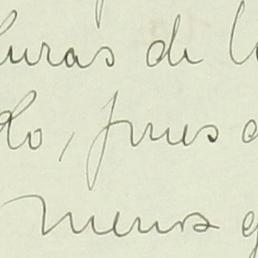 uras de l
do, pues
menos q